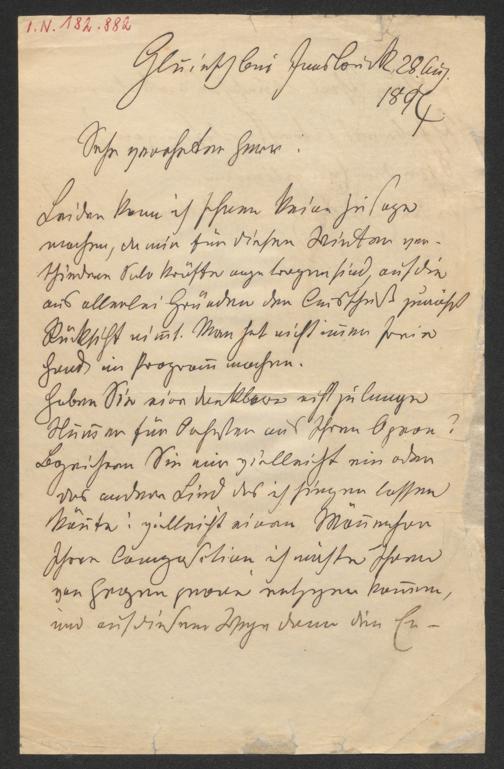 I.N. 182.882
bei Innsbruck, 28. Aug.
1894
Sehr verehrter Herr.
Leider kann ich Ihnen keine Zusage
machen, da mir für diesen Winter ver-
schiedene Solokräfte angetragen sind, auf die
aus allerlei Gründen der Ausschuß zunächst
Rücksicht nimt. Man hat nicht immer freie
Hand im Programmachen.
Haben Sie eine dankbare nicht zu lange
Numer für Orchester aus Ihren Opern?
Bezeichnen Sie mir vielleicht ein oder
das andere Lied das ich singen lassen
könte! vielleicht einen Männerchor
Ihrer Composition ich möchte Ihnen
von Herzen gerne entgegen komen,
und auf diesem Wege dann den En-